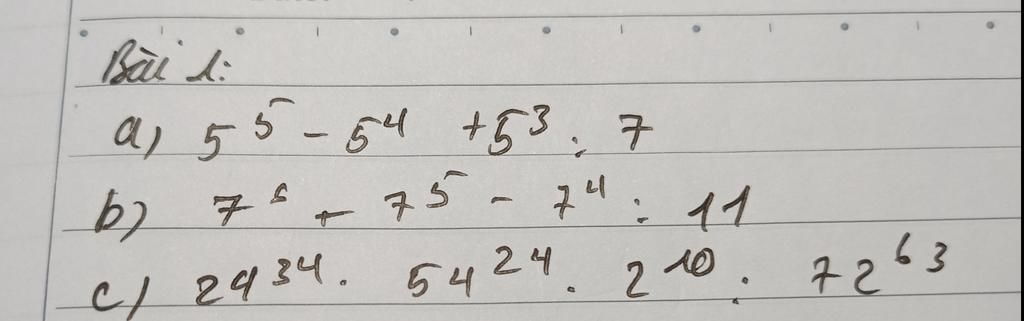 Bài 1:
a) 5⁵ - 5⁴ + 5³ : 7
b) 7⁶ + 7⁵ - 7⁴ : 11
c) 24³⁴ . 54²⁴ . 2¹⁰ : 72⁶³